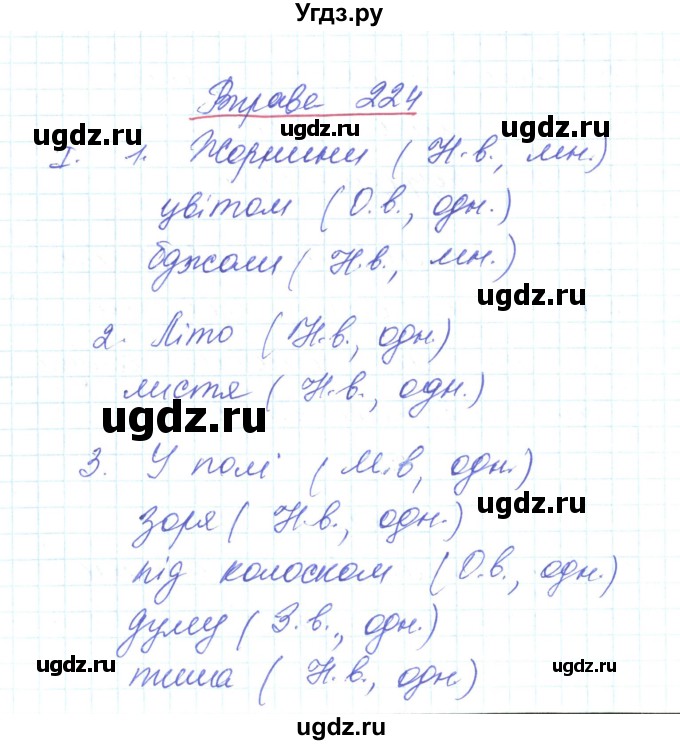 Угдз.ру
Вправа 224
ugdz.ru ugdz.ru ugdz.ru
I. 1. Жорнини (Н.в., мн.)
цвітом (О.в., одн.)
бджоли (Н.в., мн.)
ugdz.ru
2. Літо (Н.в., одн.)
листя (Н.в., одн.)
ugdz.ru
3. У полі (М.в, одн.)
ugdz.ru
зоря (Н.в., одн.)
під колоском (О.в., одн.)
думу (З.в., одн.)
ugdz.ru ugdz.ru
тиша (Н.в., одн.)
ugdz.ru